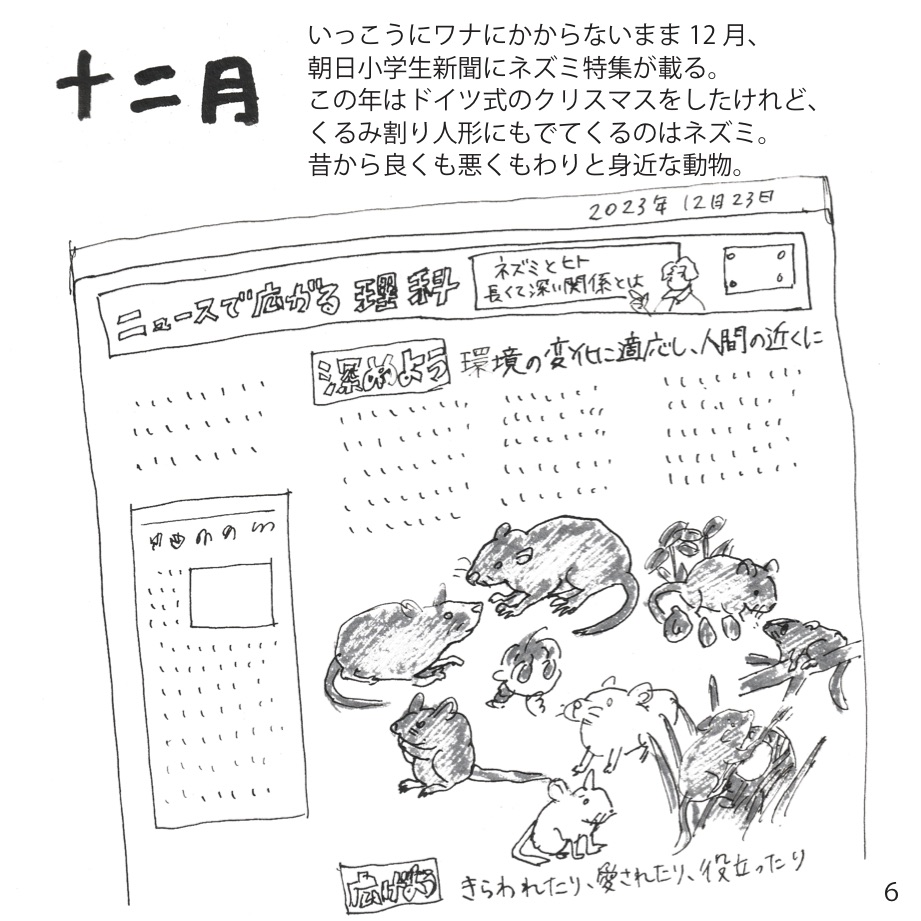 十二月
いっこうにワナにかからないまま 12 月、
朝日小学生新聞にネズミ特集が載る。
この年はドイツ式のクリスマスをしたけれど、
くるみ割り人形にもでてくるのはネズミ。
昔から良くも悪くもわりと身近な動物。
2023年 12月23日
ニュースで広がる 理科
ネズミとヒト
長くて深い関係とは
深めよう 環境の変化に適応し、人間の近くに
広げよう きらわれたり、愛されたり、役立ったり
6